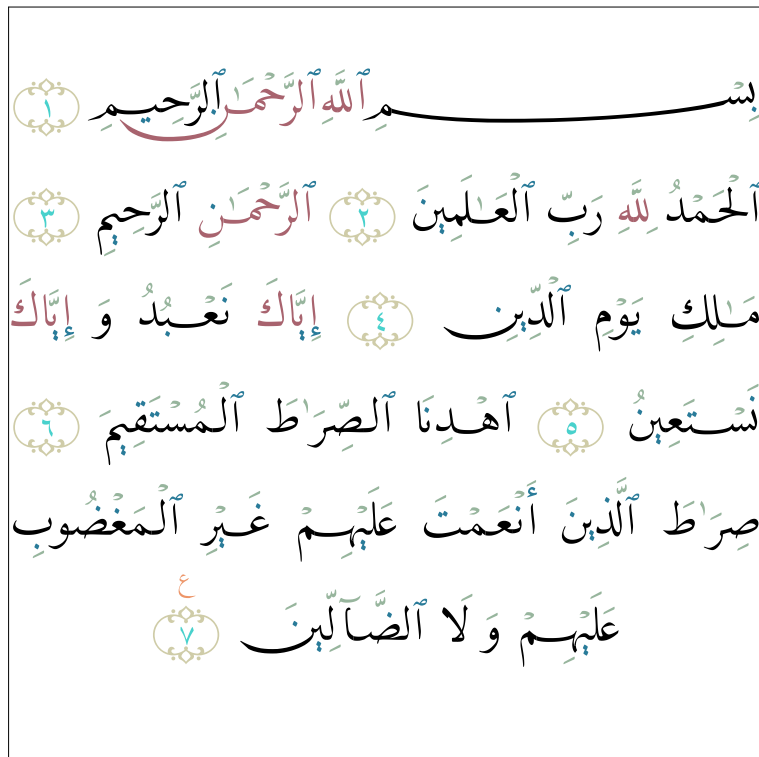 بِسْمِ ٱللَّهِ ٱلرَّحْمَـٰنِ ٱلرَّحِيمِ ١
ٱلْحَمْدُ لِلَّهِ رَبِّ ٱلْعَـٰلَمِينَ ٢ ٱلرَّحْمَـٰنِ ٱلرَّحِيمِ ٣
مَـٰلِكِ يَوْمِ ٱلدِّينِ ٤ إِيَّاكَ نَعْبُدُ وَ إِيَّاكَ
نَسْتَعِينُ ٥ ٱهْدِنَا ٱلصِّرَٰطَ ٱلْمُسْتَقِيمَ ٦
صِرَٰطَ ٱلَّذِينَ أَنْعَمْتَ عَلَيْهِمْ غَيْرِ ٱلْمَغْضُوبِ
عَلَيْهِمْ وَ لَا ٱلضَّآلِّينَ ٧ ع